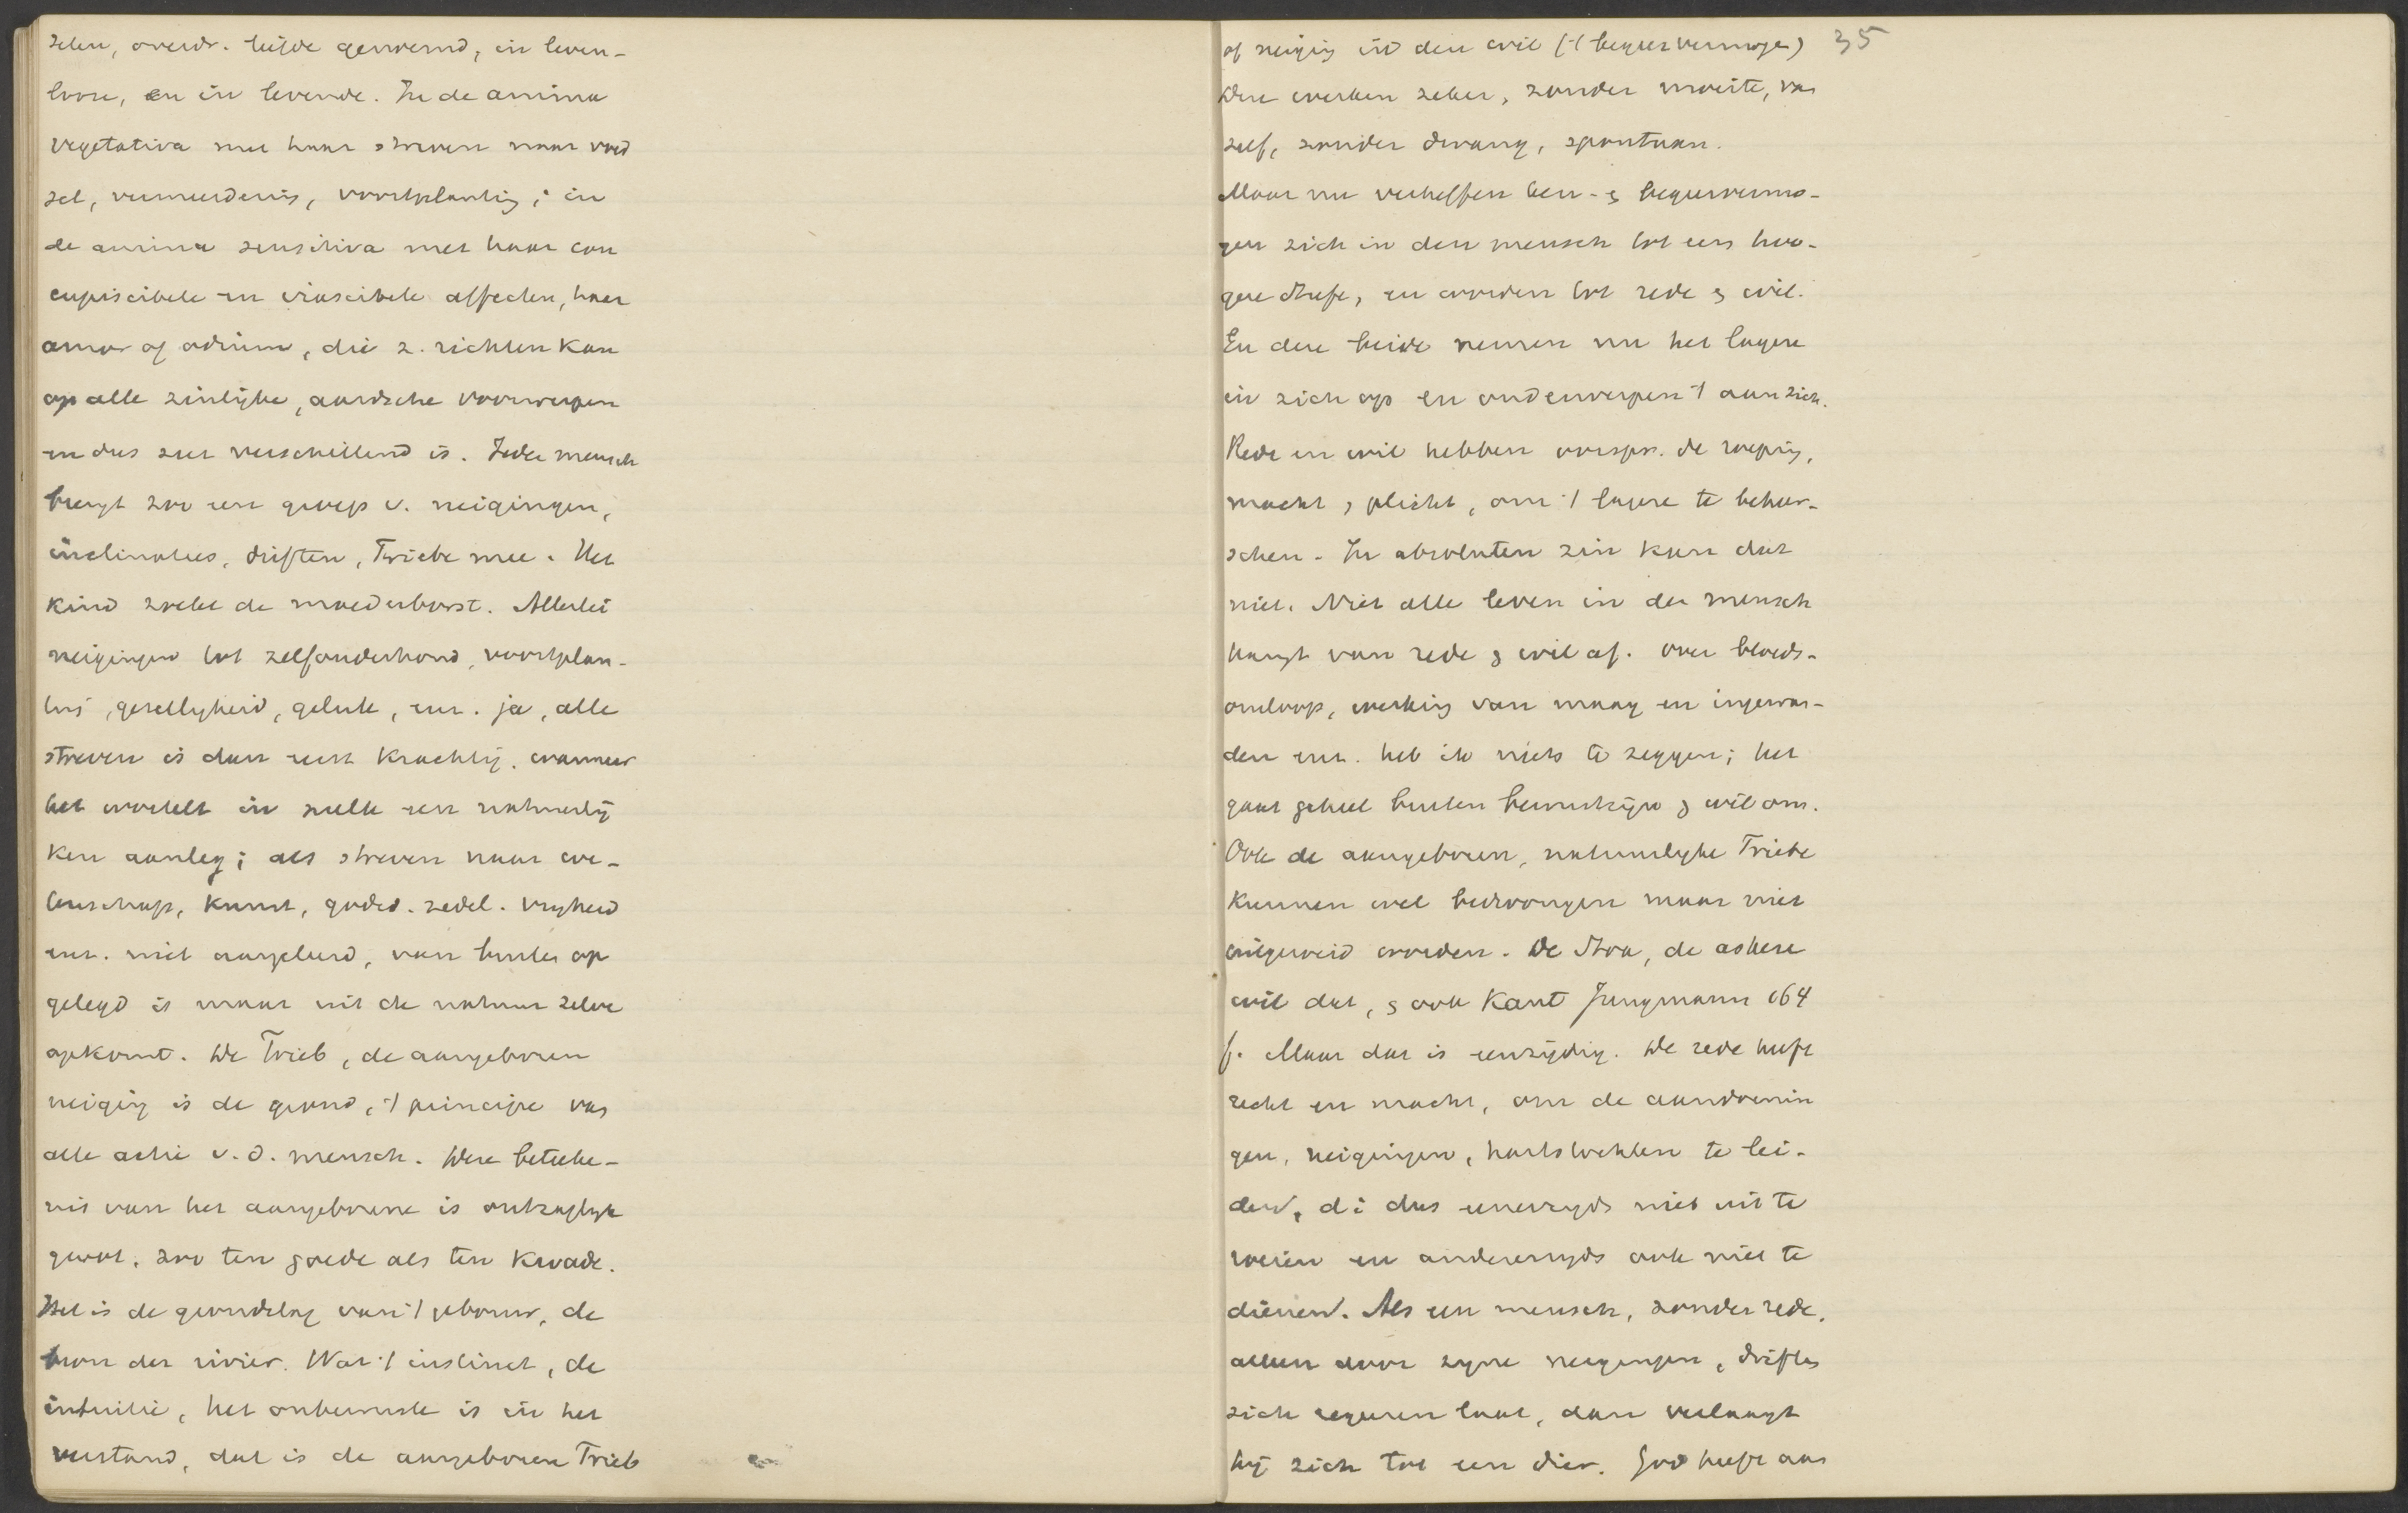 zelen, overdr. liefde genoemd, in leven-
looze, en in levende. In de anima
vegetativa met haar streven naar voed
sel, vermeerdering, voortplanting; in
de anima sensitiva met haar con
cupiscibele en irascibele affecten, haar
amor of odium, die z. richten kan
op alle zinlijke, aardsche voorwerpen
en dus zeer verschillend is. Ieder mensch
brengt zoo een groep v. neigingen,
inclinaties, driften, Triebe mee. Het
kind zoekt de moederborst. Allerlei
neigingen tot zelfonderhoud, voortplan-
ting, gezelligheid, geluk, enz. ja, alle
streven is dan eerst krachtig, wanneer
het wortelt in zulk een natuurlij
ken aanleg; als streven naar we-
tenschap, kunst, godsd. zedel. vrijheid
enz. niet aangeleerd, van buiten op
gelegd is maar uit de natuur zelve
opkomt. De Trieb, de aangeboren
neiging is de grond, 't principe van
alle actie v. d. mensch. Deze beteeke-
nis van het aangeborene is ontzaglijk
groot, zoo ten goede als ten kwade.
Het is de grondslag van 't gebouw, de
bron der rivier. Wat 't instinct, de
intuitie, het onbewuste is in het
verstand, dat is de aangeboren Trieb
35
of neiging in den wil ('t begeervermogen)
Deze werken zeker, zonder moeite, van
zelf, zonder dwang, spontaan.
Maar nu verheffen ken- & begeervermo-
gen zich in den mensch tot een hoo-
gere trap, en worden tot rede & wil.
En deze beide nemen nu het lagere
in zich op en onderwerpen 't aan zich.
Rede en wil hebben oorspr. de roeping,
macht, plicht, om 't lagere te beheer-
schen. In absoluten zin kan dat
niet. Niet alle leven in den mensch
hangt van rede & wil af. Over bloeds-
omloop, werking van maag en ingewan-
den enz. heb ik niets te zeggen; het
gaat geheel buiten bewustzijn & wil om.
Ook de aangeboren, natuurlijke Triebe
kunnen wel bedwongen maar niet
uitgeroeid worden. De Stoa, de askese
wil dat, & ook Kant Jungmann 64
f. Maar dat is eenzijdig. De rede heeft
recht en macht, om de aandoenin
gen, neigingen, hartstochten te lei-
den, d i dus eenerzijds niet uit te
roeien en anderzijds ook niet te
dienen. Als een mensch, zonder rede,
alleen door zijne neigingen, driften
zich regeeren laat, dan verlaagt
hij zich tot een dier. God heeft aan